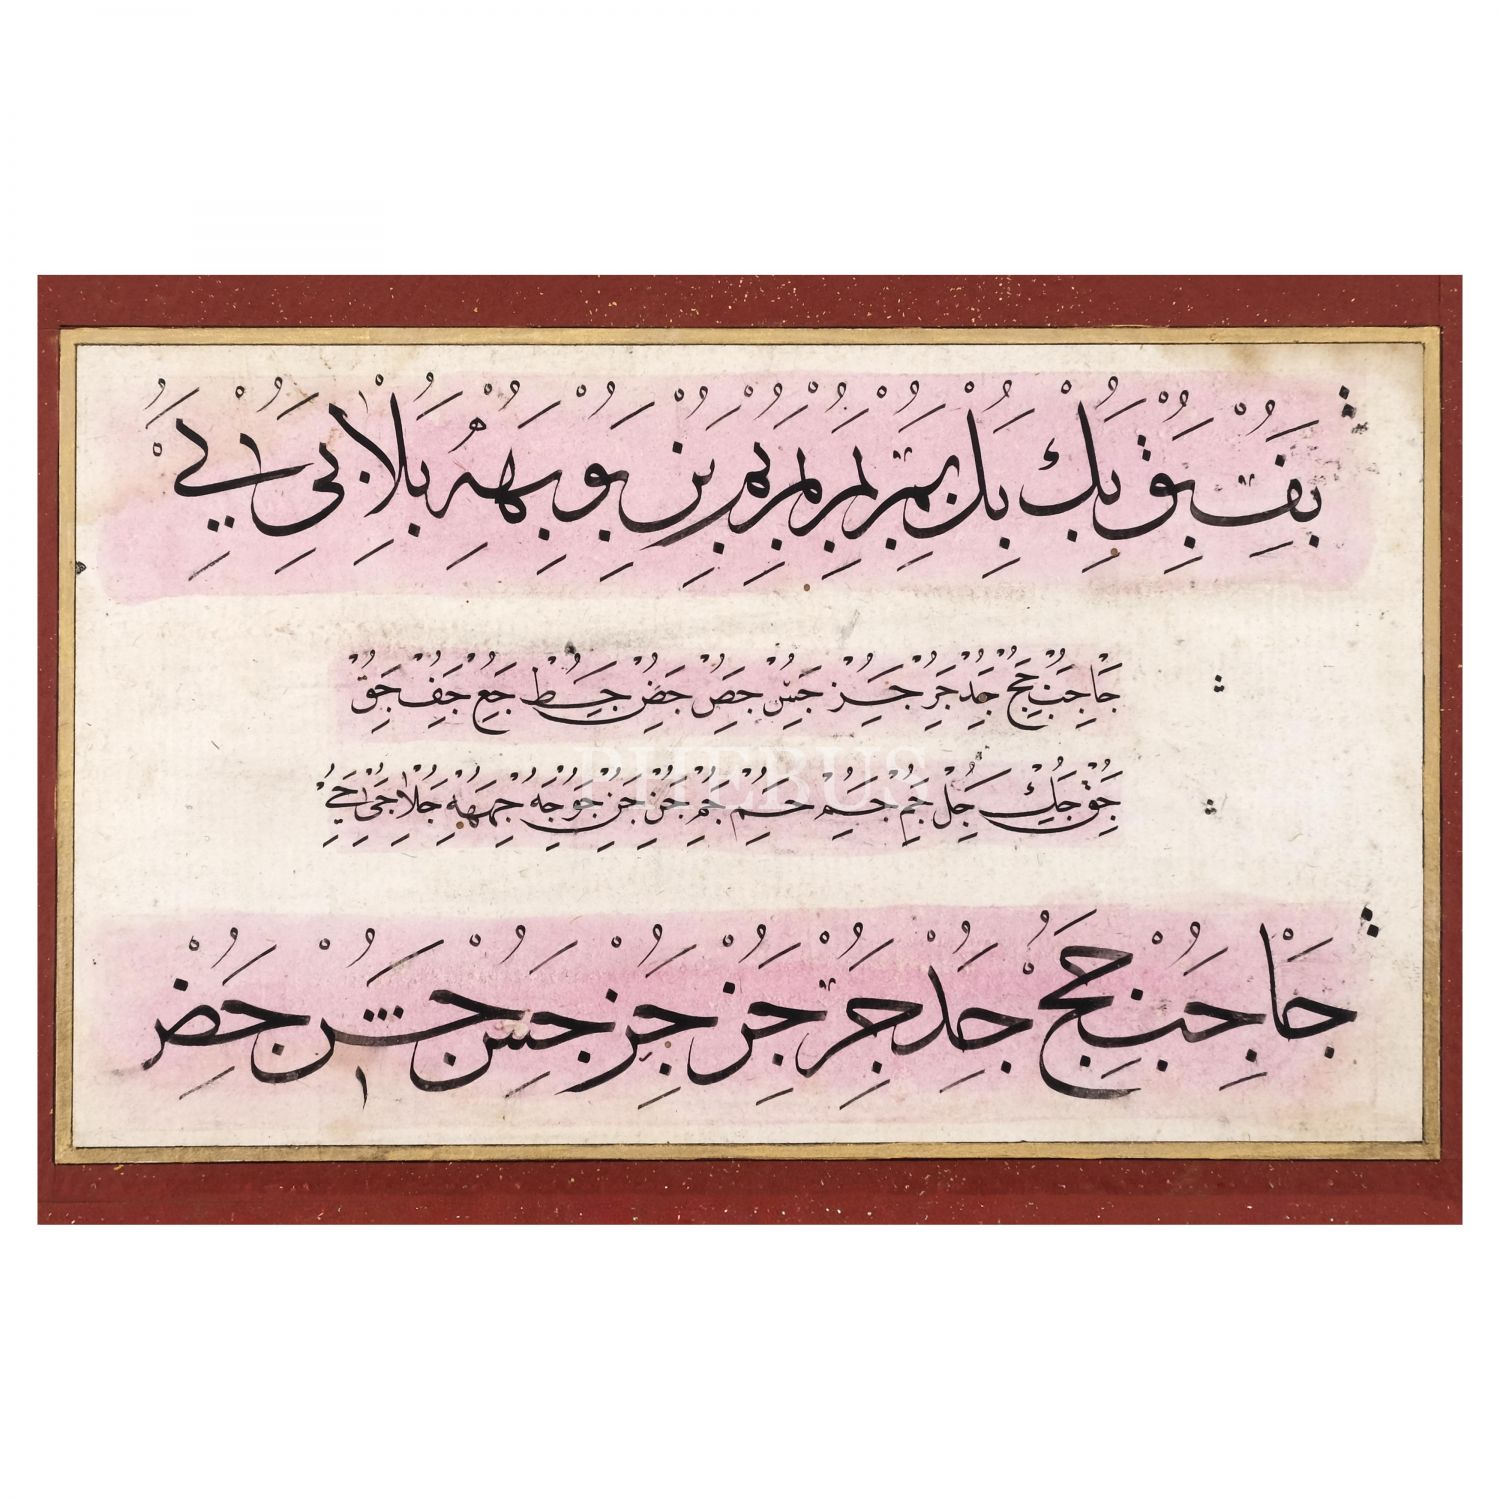 بف بق بك بل بم بمر بمر بم بن بو به بلا بى بے
جا جب جج جد جر جز جس جص جض جط جع جف جق
جق جك جل جم جم جم جم جن جن جو جه جمهة جلا جى جے
PHEBUS
جا جب جج جد جر جز جز جس جش جض